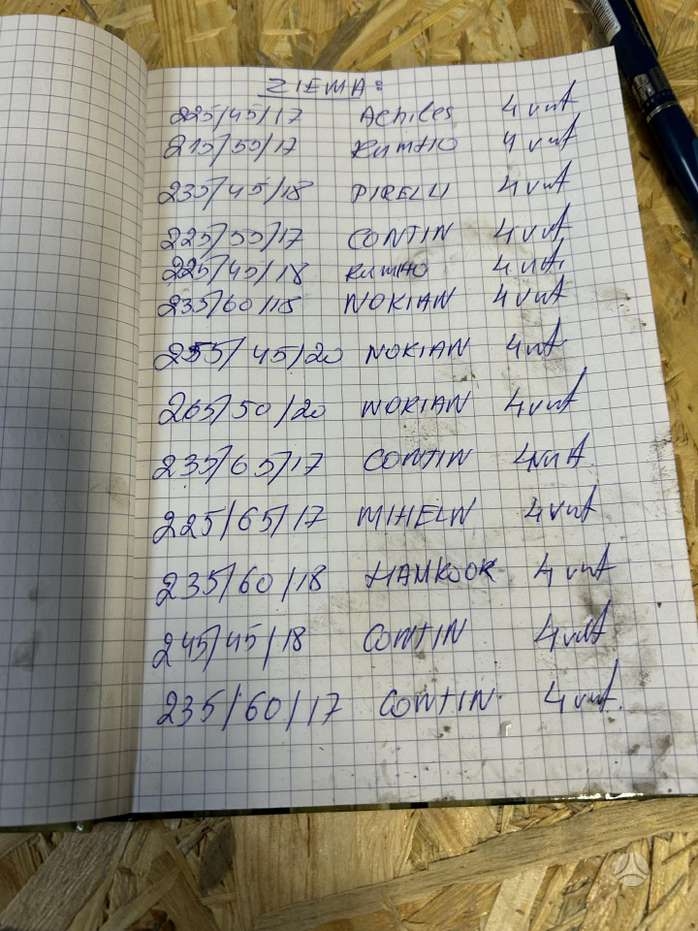 ZIEMA:
225/45/17 Achiles 4 vnt
215/55/17 KUMHO 4 vnt
235/45/18 PIRELLI 4 vnt
225/55/17 CONTIN 4 vnt
225/45/18 KUMHO 4 vnt.
235/60/18 NOKIAN 4 vnt
255/45/20 NOKIAN 4 vnt
265/50/20 NOKIAN 4 vnt
235/65/17 CONTIN 4 vnt
225/65/17 MIHELN 4 vnt
235/60/18 HANKOOK 4 vnt
245/45/18 CONTIN 4 vnt
235/60/17 CONTIN 4 vnt.